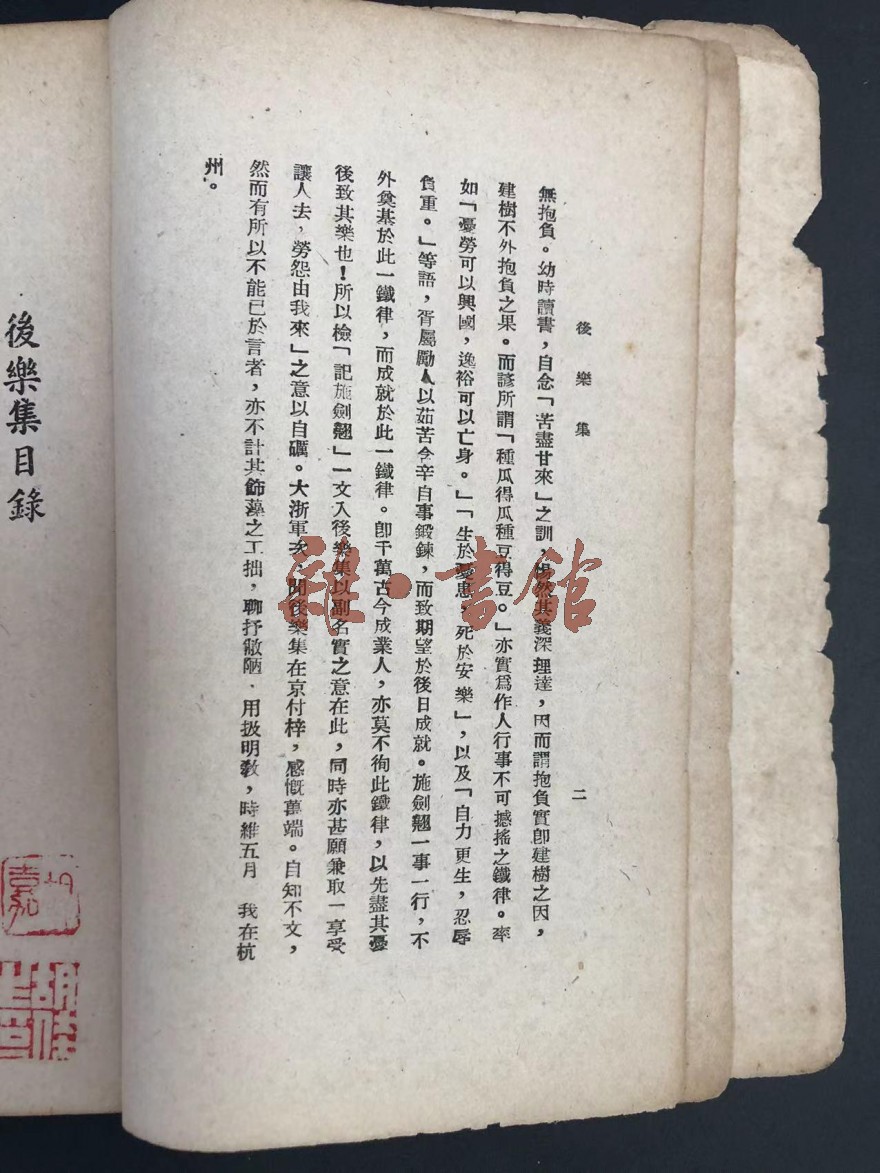 後樂集
二
無抱負。幼時讀書，自念「苦盡甘來」之訓，惕然其義深理達，因而謂抱負實卽建樹之因，
建樹不外抱負之果。而諺所謂「種瓜得瓜種豆得豆。」亦實爲作人行事不可撼搖之鐵律。率
如「憂勞可以興國，逸裕可以亡身。」「生於憂患，死於安樂」，以及「自力更生，忍辱
負重。」等語，胥屬勵人以茹苦含辛自事鍛鍊，而致期望於後日成就。施劍翹一事一行，不
外奠基於此一鐵律，而成就於此一鐵律。卽千萬古今成業人，亦莫不徇此鐵律，以先盡其憂
後致其樂也！所以檢「記施劍翹」一文入後樂集以副名實之意在此，同時亦甚願兼取一享受
讓人去，勞怨由我來」之意以自礪。大浙軍次，聞後樂集在京付梓，感慨萬端。自知不文，
然而有所以不能已於言者，亦不計其飾藻之工拙，聊抒敝陋．用扱明敎，時維五月　我在杭
州。
後樂集目錄
雜·書館